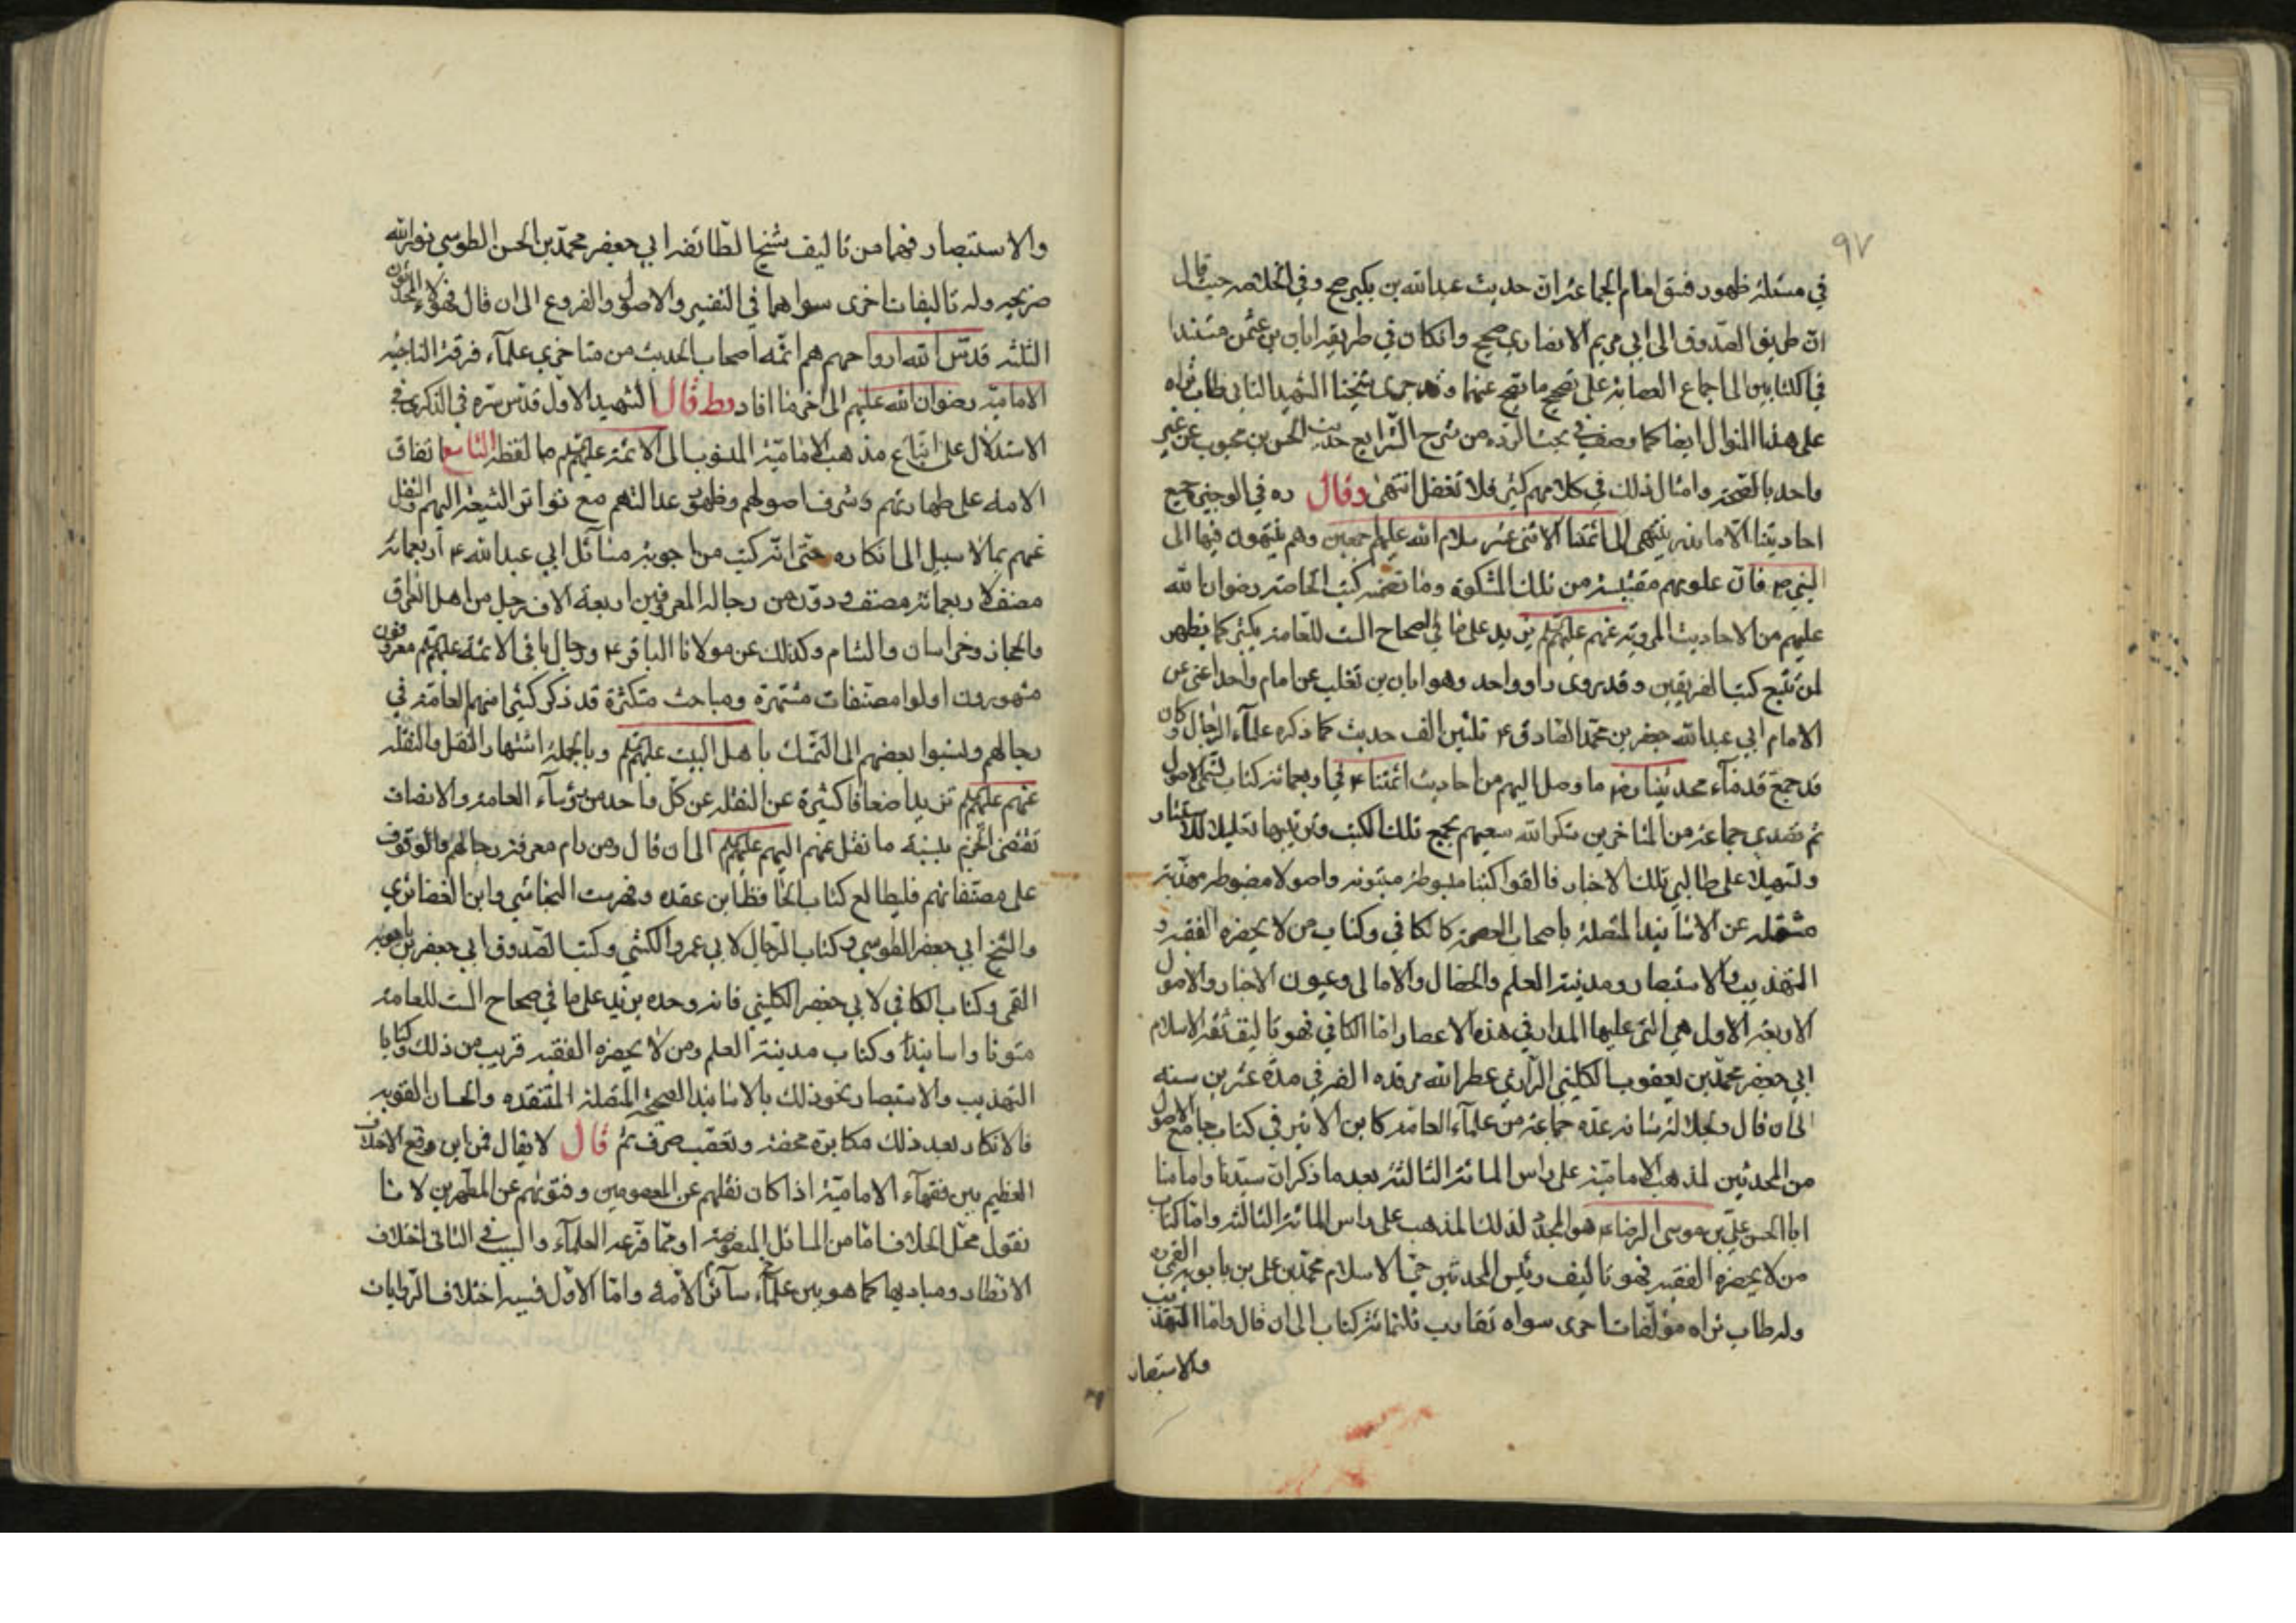 ٩٧
في مسئلة ظهور فسق امام الجماعة ان حديث عبد الله بن بكير صح وفي الخلاصه حيث قال
ان طريق الصدوق الى ابي مريم الانصاري صحيح وانكان في طريقه ابان بن عثمن مستندا
في الكتابين الى اجماع العصابة على تصحيح ما يصح عنهما وقد جرى شيخنا الشهيد الثاني طاب ثراه
على هذا المنوال ايضا كما وصف في بحث الردة من شرح الشرايع حديث الحسن بن محبوب عن غير
واحد بالصحة وامثال ذلك في كلامهم كثير فلا تغفل انتهى وقال ره في الوجيز جميع
احاديثنا الا ما ندر ينتهي الى ائمتنا الاثنى عشر سلام الله عليهم اجمعين وهم ينتهون فيها الى
النبي ص فان علومهم مقتبسة من تلك المشكوة وما تضمنه كتب الخاصة رضوان الله
عليهم من الاحاديث المروية عنهم عليهم يزيد على ما في الصحاح الست للعامة بكثير كما يظهر
لمن تتبع كتب الفريقين وقد روى راو واحد وهو ابان بن تغلب عن امام واحد اعني عن
الامام ابي عبد الله جعفر بن محمد الصادق ع ثلثين الف حديث كما ذكره علماء الرجال وكان
قد جمع قدماء محدثينا رض ما وصل اليهم من احاديث ائمتنا ع في اربعمائة كتاب تسمى الاصول
ثم تصدى جماعة من المتاخرين شكر الله سعيهم بجمع تلك الكتب وترتيبها تقليلا للانتشار
وتسهيلا على طالبي تلك الاخبار فالفوا كتبا مبسوطة مبتوبه واصولا مضبوطة مهذبة
مشتمله عن الاسانيد المتصلة باصحاب العصمة كالكافي وكتاب من لا يحضره الفقيه و
التهذيب والاستبصار ومدينة العلم والخصال والامالي وعيون الاخبار والاصول
الاربعة الاول هي التي عليها المدار في هذه الاعصار اما الكافي فهو تاليف ثقة الاسلام
ابي جعفر محمد بن يعقوب الكليني الرازي عطر الله مرقده الفه في مدة عشرين سنه
الى ان قال ولجلالة شانه عده جماعة من علماء العامة كابن الاثير في كتاب جامع الاصول
من المحدثين لمذهب الامامية على راس المائة الثالثة بعد ما ذكر ان سيدنا وامامنا
ابا الحسن علي بن موسى الرضا ع هو المجدد لذلك المذهب على راس المائة الثالثة واما كتاب
من لا يحضره الفقيه فهو تاليف رئيس المحدثين حجة الاسلام محمد بن علي بن بابويه القمي
وله طاب ثراه مؤلفات اخرى سواه تقارب ثلثمائة كتاب الى ان قال واما التهذيب
والاستبصار
والاستبصار فهما من تاليف شيخ الطائفه ابي جعفر محمد بن الحسن الطوسي نور الله
ضريحه وله تاليفات اخرى سواهما في التفسير والاصول والفروع الى ان قال فهؤلاء المحمدون
الثلثه قدس الله ارواحهم هم ائمه اصحاب الحديث من متاخري علماء فرقة الناجيه
الامامية رضوان الله عليهم الى اخر ما افاد وط قال الشهيد الاول قدس سره في الذكرى في
الاستدلال على اتباع مذهب الامامية المنسوب الى الائمة عليهم ما لفظه التاسع اتفاق
الامه على طهارتهم وشرف اصولهم وظهور عدالتهم مع تواتر الشيعة اليهم والنقل
عنهم بما لا سبيل الى انكاره حتى انه كتب من اجوبة مسائل ابي عبد الله ع اربعمائة
مصنف لاربعمائة مصنف ودون من رجاله المعروفين اربعة الاف رجل من اهل العراق
والحجاز وخراسان والشام وكذلك عن مولانا الباقر ع ورجال باقي الائمة عليهم معروفون
مشهورون اولوا مصنفات مشتهرة ومباحث متكثرة قد ذكر كثيرا منهم العامة في
رجالهم ونسبوا بعضهم الى التمسك باهل البيت عليهم وبالجملة اشتهار النقل والنقلة
عنهم عليهم تزيد اضعافا كثيرة عن النقلة عن كل واحد من رؤساء العامة والانصاف
تقتضي الجزم بنسبة ما نقل عنهم اليهم عليهم الى ان قال ومن رام معرفة رجالهم والوقوف
على مصنفاتهم فليطالع كتاب الحافظ ابن عقده وفهرست النجاشي وابن الغضائري
والشيخ ابي جعفر الطوسي وكتاب الرجال لابي عمرو الكشي وكتب الصدوق ابي جعفر بن بابويه
القمي وكتاب الكافي لابي جعفر الكليني فانه وحده يزيد على ما في صحاح الست للعامة
متونا واسانيد وكتاب مدينة العلم ومن لا يحضره الفقيه قريب من ذلك وكتابا
التهذيب والاستبصار نحو ذلك بالاسانيد الصحيحة المتصلة المنتقده والحسان القويه
فالانكار بعد ذلك مكابرة محضة وتعصب صرف ثم قال لا يقال فمن اين وقع الاختلاف
العظيم بين فقهاء الامامية اذا كان نقلهم عن المعصومين وفتويهم عن المطهرين لانا
نقول محل الخلاف اما من المسائل المنصوصة او مما فرعه العلماء والسبب في الثاني اختلاف
الانظار ومباديها كما هو بين علماء سائر الامه واما الاول فسببه اختلاف الروايات